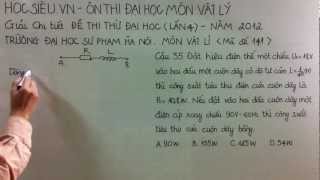 HỌC SIÊU VN - ÔN THI ĐẠI HỌC MÔN VẬT LÝ
Giải Chi tiết ĐỀ THI THỬ ĐẠI HỌC (LẦN 4) - NĂM 2012
TRƯỜNG ĐẠI HỌC SƯ PHẠM HÀ NỘI. MÔN VẬT LÍ (Mã đề 141)
A R L B
Câu 35 Đặt hiệu điện thế một chiều
vào hai đầu một cuộn dây có độ tự cảm L =
thì công suất tiêu thụ điện của cuộn dây là
Nếu đặt vào hai đầu cuộn dây một
điện áp xoay chiều 90V - 60Hz thì công suất
tiêu thụ của cuộn dây bằng.
A. 90W B. 135W C. D. 54W